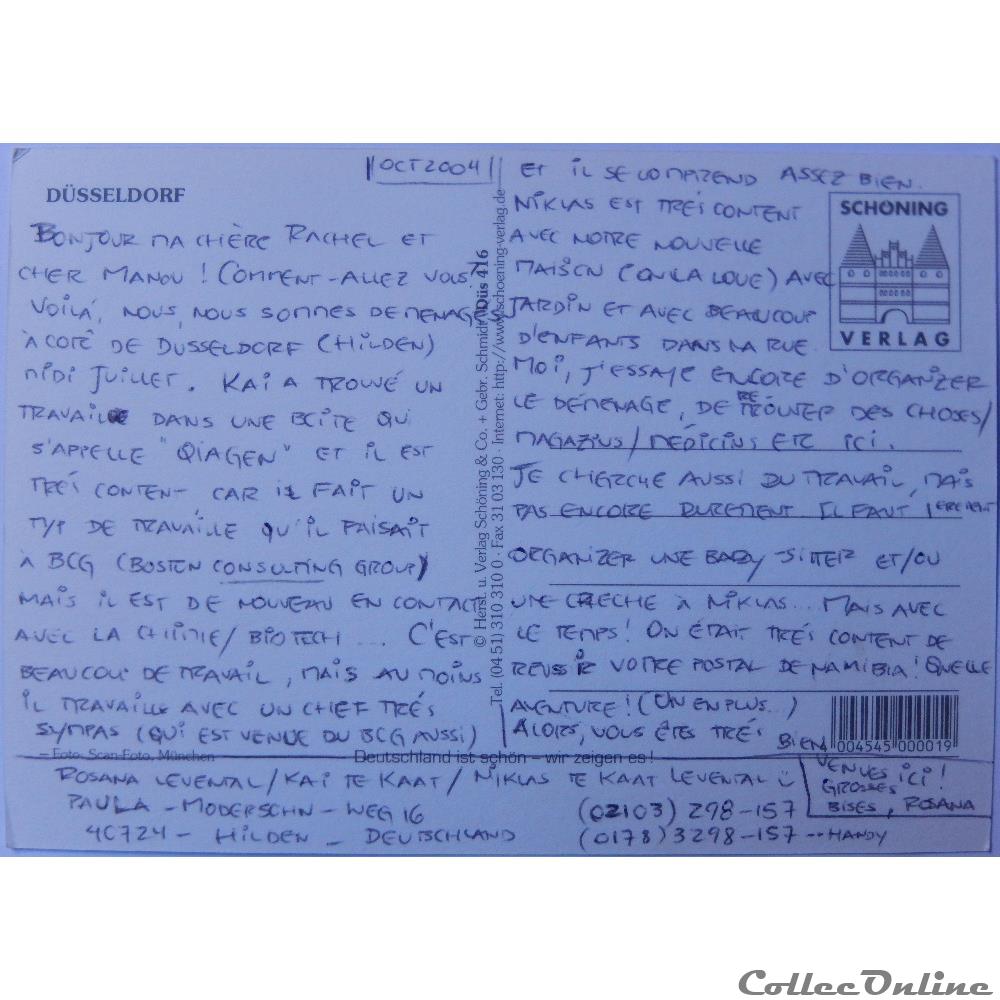 OCT 2004
DÜSSELDORF
BONJOUR MA CHIÈRE RACHEL ET
CHER MANOU! COMMENT-ALLEZ VOUS?
VOILÁ, NOUS NOUS SOMMES DEMENAGÉS
À COTÊ DE DUSSELDORF (HILDEN)
MIDI JUILLET. KAI A TROUVÉ UN
TRAVAIL DANS UNE BOITE QUI
S'APPELLE "QIAGEN" ET IL EST
TRÉS CONTENT CAR IL FAIT UN
TYP DE TRAVAILLE QU'IL FAISAIT
À BCG (BOSTON CONSULTING GROUP)
MAIS IL EST DE NOUVEAU EN CONTACT
AVEC LA CHIMIE/BIOTECH ... C'EST
BEAUCOUP DE TRAVAIL, MAIS AU MOINS
IL TRAVAILLE AVEC UN CHEF TRÉS
SYMPAS (QUI EST VENUE DU BCG AUSSI)
ET IL SE COMPREND ASSEZ BIEN.
NIKLAS EST TRÉS CONTENT
AVEC NOTRE NOUVELLE
MAISON (ON LA LOUE) AVEC
JARDIN ET AVEC BEAUCOUP
D'ENFANTS DANS MA RUE.
MOI, J'ESSAYE ENCORE D'ORGANIZER
LE DÉMENAGE, DE RETROUVER DES CHOSES/
MAGAZINS/MÉDICINS ETC ICI.
JE CHERCHE AUSSI DU TRAVAIL, MAIS
PAS ENCORE DUREMENT. IL FAUT 1EREMENT
ORGANIZER UNE BABY-SITTER ET/OU
UNE CRECHE À NIKLAS... MAIS AVEC
LE TEMPS! ON ÉTAIT TRÉS CONTENT DE
REUSSIR VOTRE POSTAL DE NAMIBIA! QUELLE
AVENTURE! (UN EN PLUS...)
ALORS, VOUS ÊTES TRÉS
BIEN
VENUES ICI!
GROSSES
BISES, ROSANA
ROSANA LEVENTAL/KAI TE KAAT/NIKLAS TE KAAT LEVENTAL
PAULA-MODERSOHN-WEG 16 (02103) 298-157
40724 - HILDEN - DEUTSCHLAND (0178) 3298-157 -- HANDY
© Herst. u. Verlag Schöning & Co. + Gebr. Schmidt Düs 416
Tel. (04 51) 310 310 0 · Fax 31 03 130 · Internet: http://www.schoening-verlag.de
SCHÖNING
VERLAG
4 004545 000019
– Foto: Scan-Foto, München
Deutschland ist schön – wir zeigen es!
CollecOnline